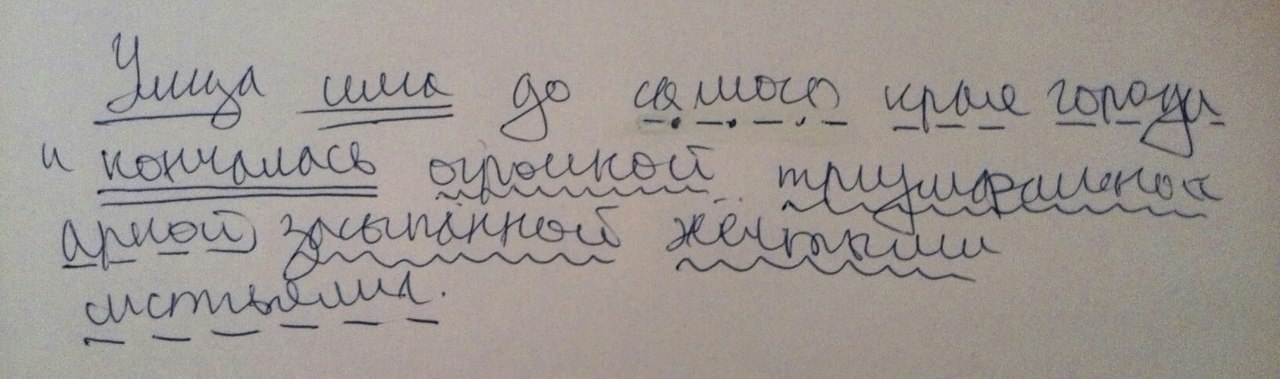 Улица шла до самого края города
и кончалась огромной триумфальной
аркой засыпанной жёлтыми
листьями.